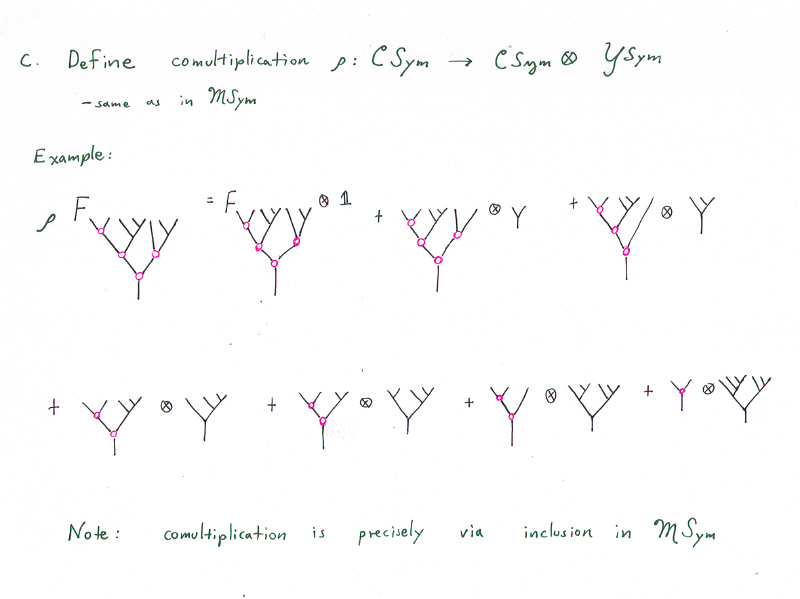 C. Define comultiplication ρ: CSym → CSym ⊗ YSym
- same as in MSym
Example:
ρ F = F ⊗ 1 + ⊗ + ⊗
+ ⊗ + ⊗ + ⊗ + ⊗
Note: comultiplication is precisely via inclusion in MSym